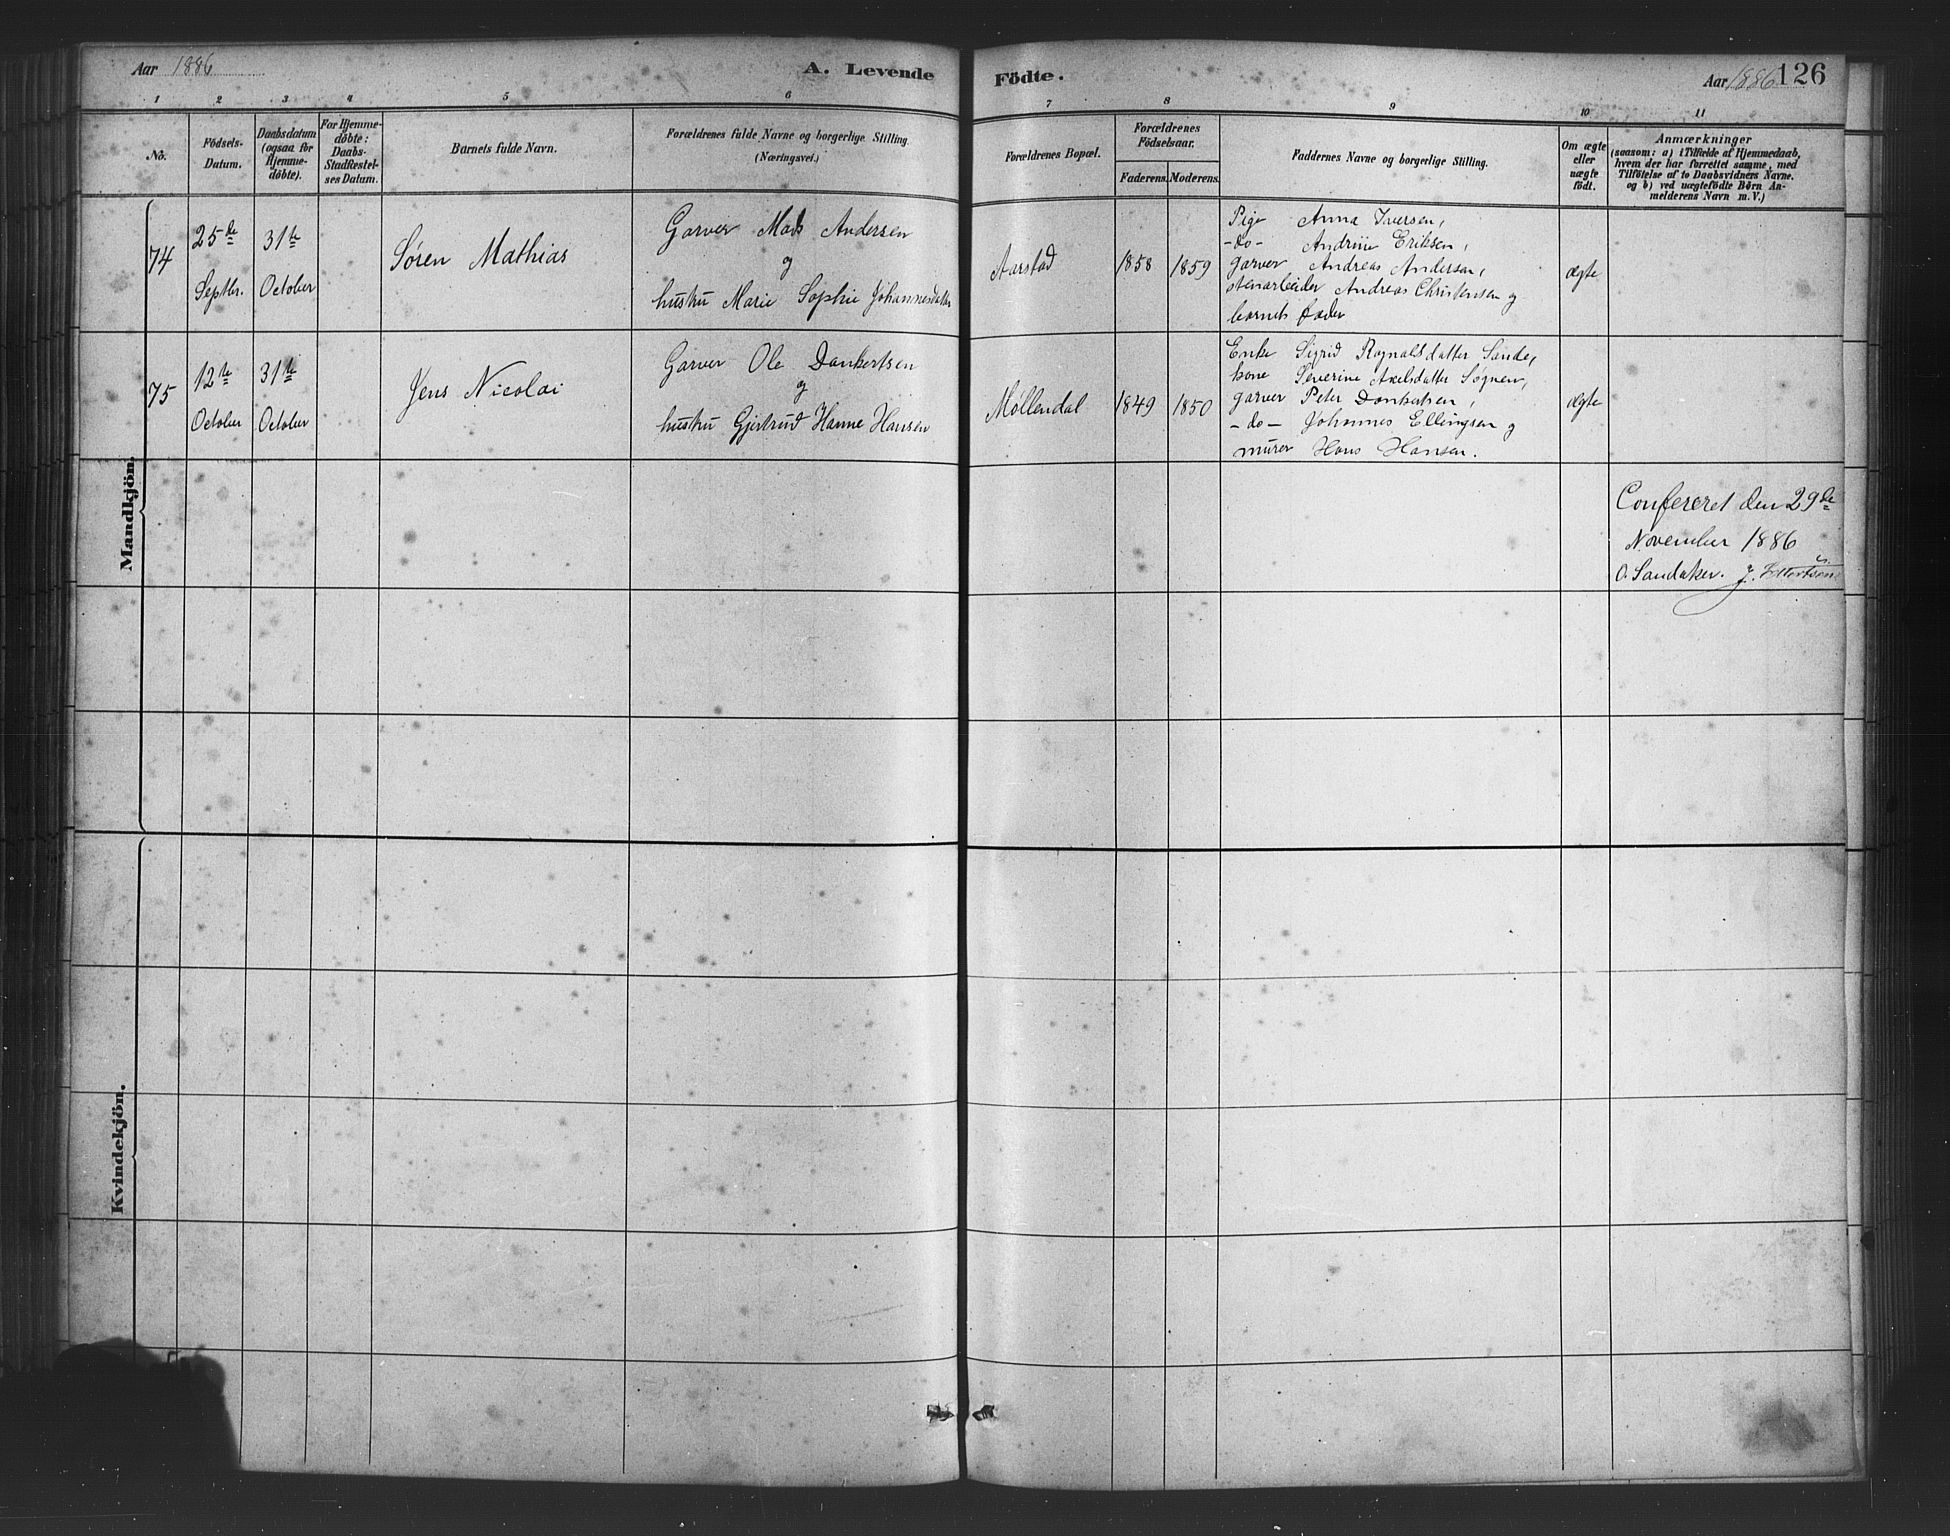 Aar 1886
A. Levende
Födte.
Aar 1886 126
1 2 3 4 5 6 7 8 9 10 11
No.
Födsels-
Datum.
Daabsdatum
(ogsaa for
Hjemme-
döbte).
For Hjemme-
döbte:
Daabs-
Stadfestel-
ses Datum.
Barnets fulde Navn.
Forældrenes fulde Navne og borgerlige Stilling
(Næringsvei.)
Forældrenes Bopæl.
Forældrenes
Födselsaar.
Faderens. Moderens.
Faddernes Navne og borgerlige Stilling.
Om ægte
eller
uægte
födt.
Anmærkninger
(saasom: a) i Tilfælde af Hjemmedaab,
hvem der har forrettet samme, med
Tilföielse af to Daabsvidners Navne.
og b) ved uægtefödte Börn An-
melderens Navn m. V.)
Mandkjön.
74
25de
Septbr.
31te
October
Søren Mathias
Garver Mads Andersen
og
hustru Marie Sophie Johannesdatter
Aarstad
1858
1859
Pige Anna Iversen,
-do- Andrine Eriksen,
garver Andreas Andersen,
stenarbeider Andreas Christensen og
barnets fader
ægte
75
12te
October
31te
October
Jens Nicolai
Garver Ole Dankertsen
og
hustru Gjertrud Hanne Hansen
Møllendal
1849
1850
Enke Sigrid Ragnalsdatter Sande,
kone Severine Axelsdatter Søgnen,
garver Peter Dankertsen,
-do- Johannes Ellingsen og
murer Hans Hansen.
ægte
Confereret den 29de
November 1886
O. Sandaker. J.
Kvindekjön.